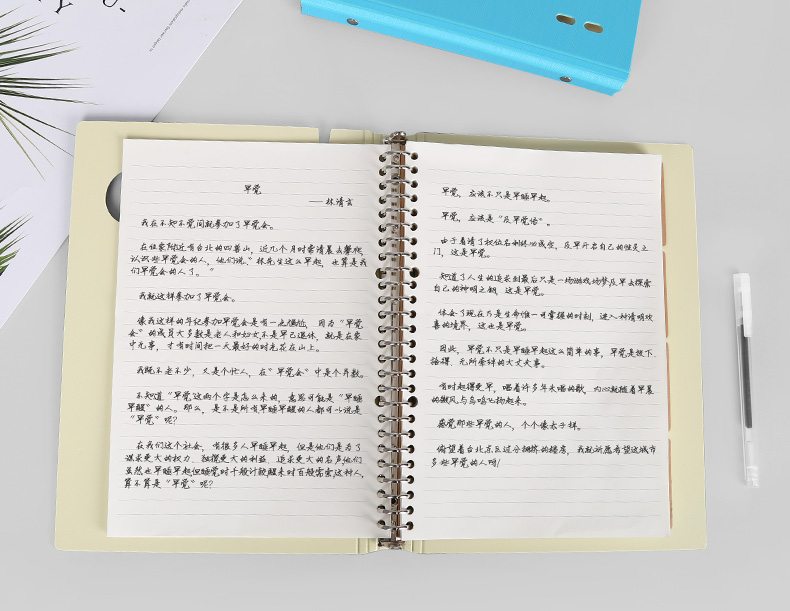 早觉
——林清玄
我在不知不觉间就参加了早觉会。
在住家附近有台北的四兽山，近几个月时常清晨去攀爬，
认识些早觉会的人，他们说："林先生这么早起，也算是我
们早觉会的人了。"
我就这样参加了早觉会。
像我这样的年纪参加早觉会是有一点尴尬，因为"早觉
会"的成员大多数是老人和妇女，不是早已退休，就是在家
中无事，才有时间把一天最好的时光花在山上。
我既不老不少，又是个忙人，在"早觉会"中是个异数。
不知道"早觉"这两个字是怎么来的，意思可能是"早睡
早醒"的人。那么，是不是所有早睡早醒的人都可以说是
"早觉"呢？
在我们这个社会，有很多人早睡早起，但是他们是为了
谋求更大的权力、独揽更大的利益、追求更大的名声，他们
虽然也早睡早起但睡觉时千般计较醒来时百般需索，这种人，
算不算是"早觉"呢？
早觉，应该不只是早睡早起。
早觉，应该是"及早觉悟"。
由于看清了权位名利终必成空，及早开启自己的性灵之
门，这是早觉。
知道了人生的追求到最后只是一场游戏场梦及早去探索
自己的神明之钥，这是早觉。
体会了现在乃是生命惟一可掌握的时刻，进入一种清明欢
喜的境界，这也是早觉。
因此，早觉不只是早睡早起这么简单的事，早觉是放下、
舍得、无所牵绊的大丈夫事。
有时起得更早，唱着许多年未唱的歌，内心就随着早晨
的微风与鸟鸣飞扬起来。
感觉那些早觉的人，个个像赤子一样。
俯望着台北东区过分拥挤的楼房，我就祈愿希望这城市
多些早觉的人啊！